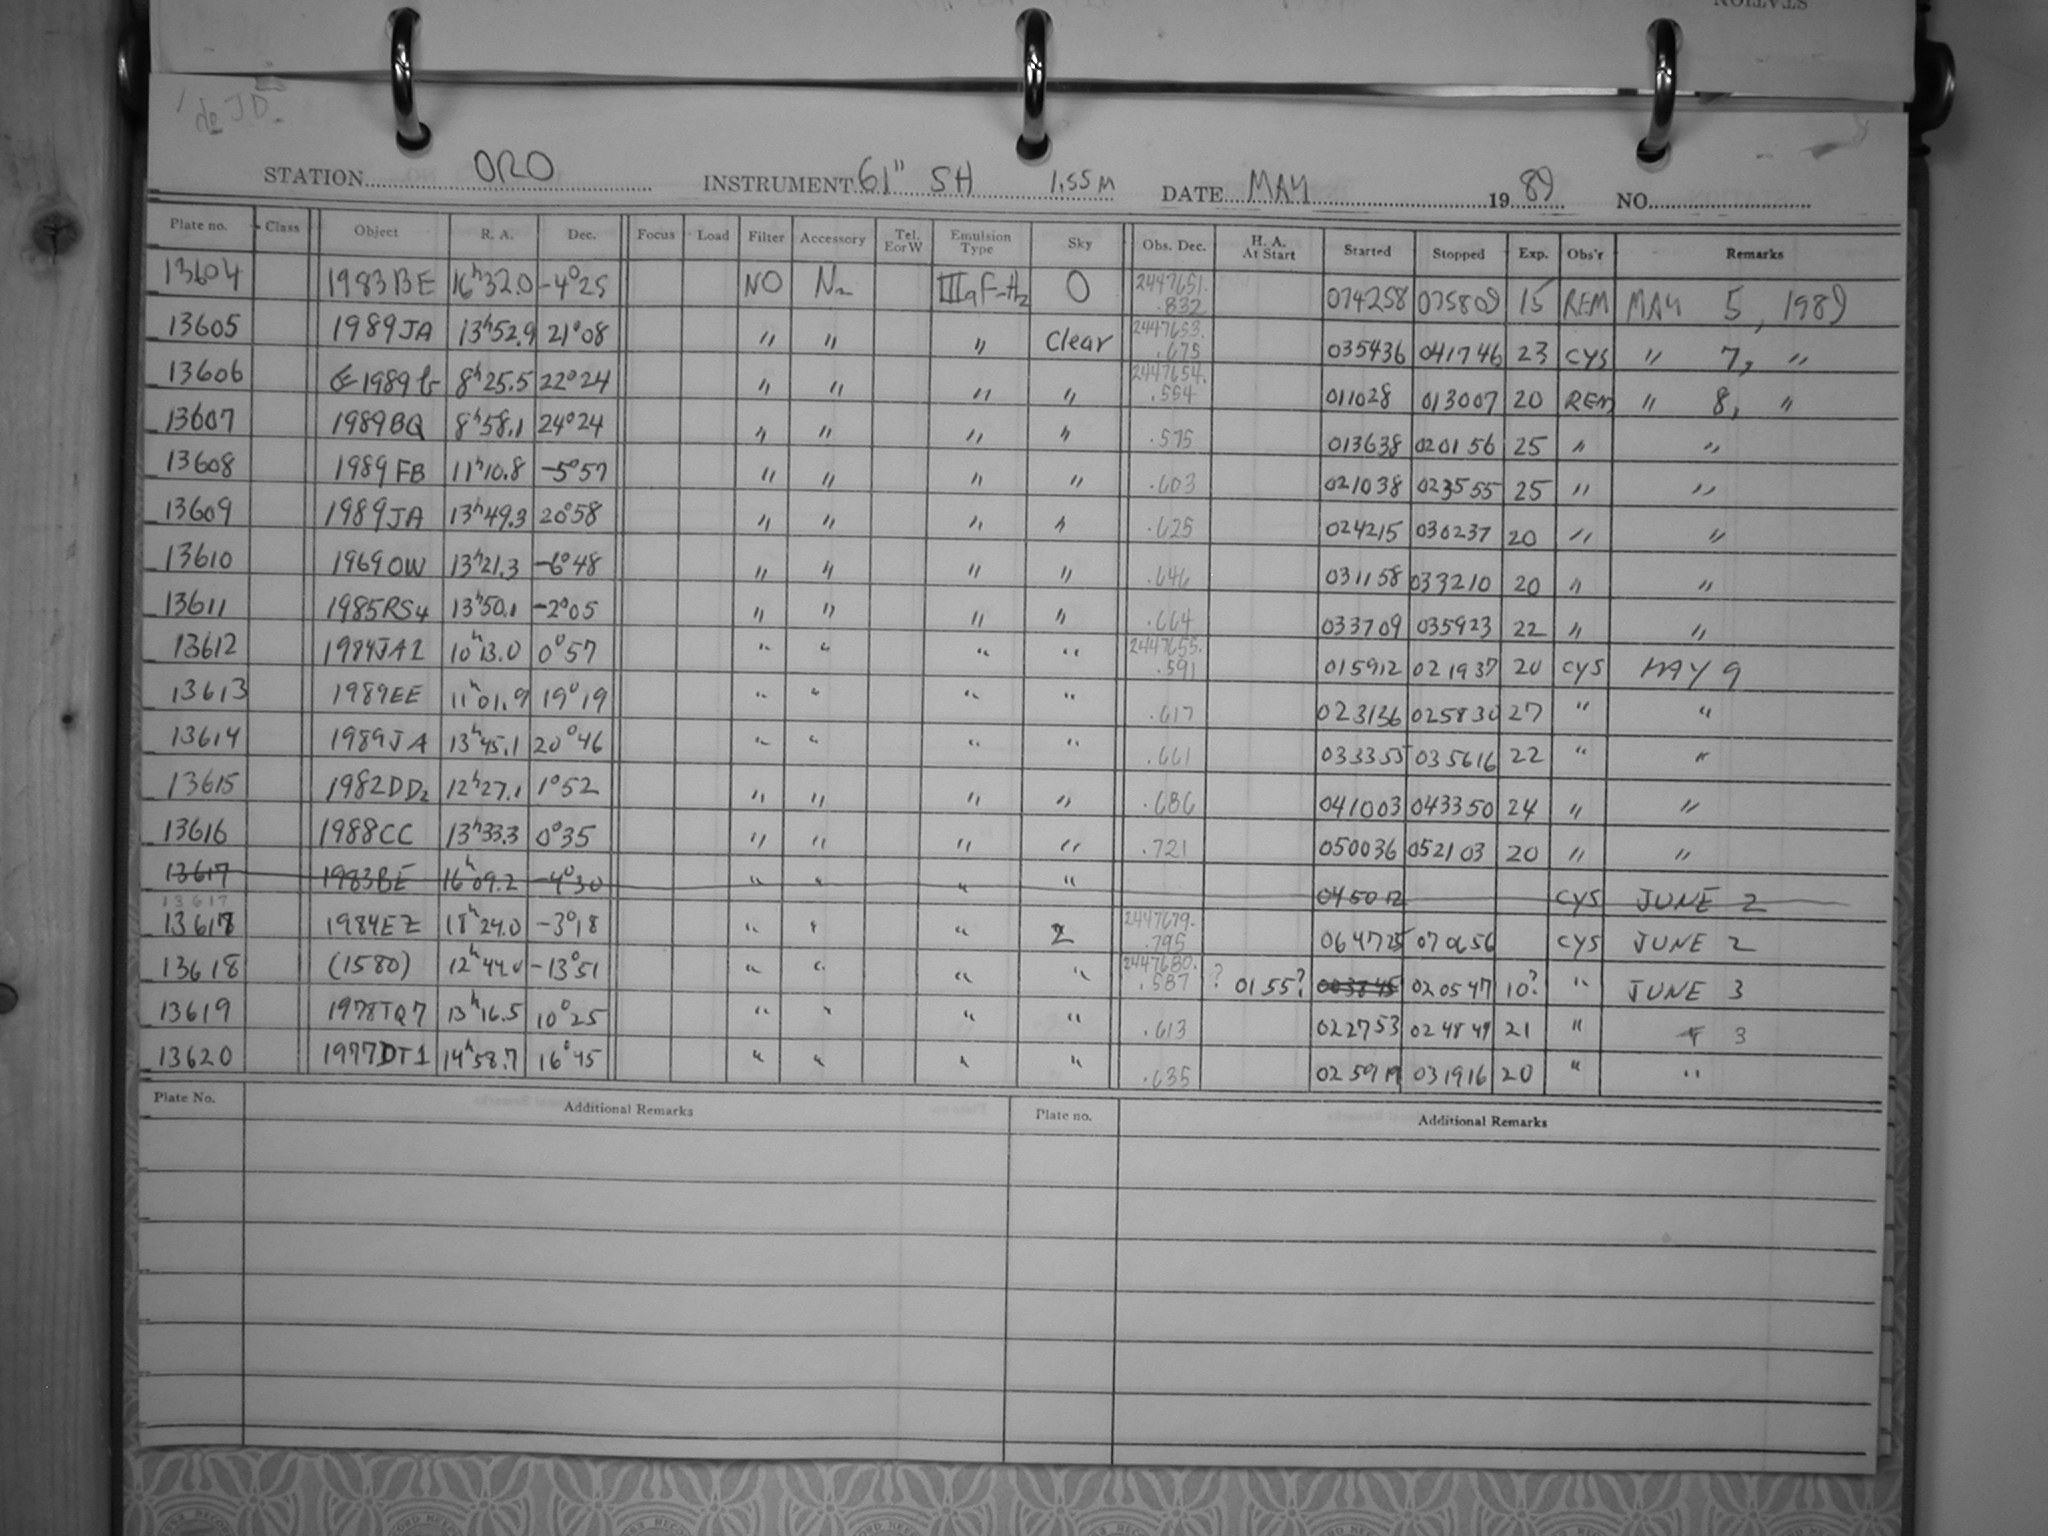 de JD.
STATION ORO INSTRUMENT 61" SH 1.55M DATE MAY 1989 NO.
Plate no. Class Object R. A. Dec. Focus Load Filter Accessory Tel. E or W Emulsion Type Sky Obs. Dec. H. A. At Start Started Stopped Exp. Obs'r Remarks
13604 1983BE 16h32.0 -4°25 NO N2 IIIaF-H2 0 2447651.832 074258 075809 15 REM MAY 5, 1989
13605 1989JA 13h52.9 21°08 " " " Clear 2447653.675 035436 041746 23 CYS " 7, "
13606 1989b 8h25.5 22°24 " " " " 2447654.554 011028 013007 20 REM " 8, "
13607 1989BQ 8h58.1 24°24 " " " " .575 013638 020156 25 " "
13608 1989FB 11h10.8 -5°57 " " " " .603 021038 023555 25 " "
13609 1989JA 13h49.3 20°58 " " " " .625 024215 030237 20 " "
13610 1969OW 13h21.3 -6°48 " " " " .646 031158 033210 20 " "
13611 1985RS4 13h50.1 -2°05 " " " " .664 033709 035923 22 " "
13612 1984JA1 10h13.0 0°57 " " " " 2447655.591 015912 021937 20 CYS MAY 9
13613 1989EE 11h01.9 19°19 " " " " .617 023136 025830 27 " "
13614 1989JA 13h45.1 20°46 " " " " .661 033355 035616 22 " "
13615 1982DD2 12h27.1 1°52 " " " " .686 041003 043350 24 " "
13616 1988CC 13h33.3 0°35 " " " " .721 050036 052103 20 " "
13617 1983BE 16h09.2 -4°30 " " " " 045012 CYS JUNE 2
13617
13618 1984EZ 18h24.0 -3°18 " " " 2 2447679.795 064725 070656 CYS JUNE 2
13618 (1580) 12h44.0 -13°51 " " " " 2447680.587 ? 0155? 003845 020547 10? " JUNE 3
13619 1978TQ7 13h16.5 10°25 " " " " .613 022753 024849 21 " 3
13620 1977DT1 14h58.7 16°45 " " " " .635 025919 031916 20 " "
Plate No. Additional Remarks Plate no. Additional Remarks